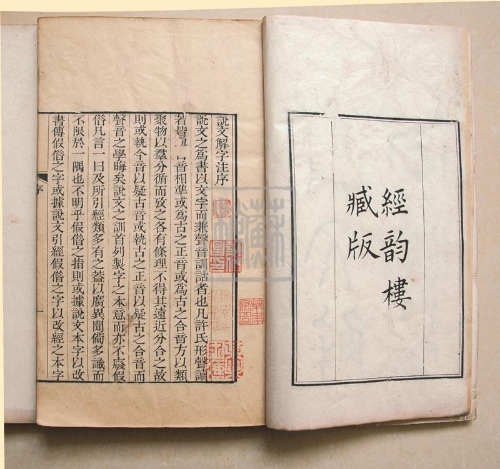 經韵樓
臧版
說文解字注序
說文之爲書以文字而兼聲音訓詁者也凡許氏形聲讀
若皆古音相準或爲古之正音或爲古之合音方以類
聚物以羣分循而攷之各有條理不得其遠近分合之故
則或執今音以疑古音或執古之正音以疑古之合音而
聲音之學晦矣說文之訓首列製字之本意而亦不廢假
借凡言一曰及所引經類多有之葢以廣異聞備多識而
不限於一隅也不明乎假借之指則或據說文本字以改
書傳假借之字或據說文引經假借之字以改經之本字
序
一